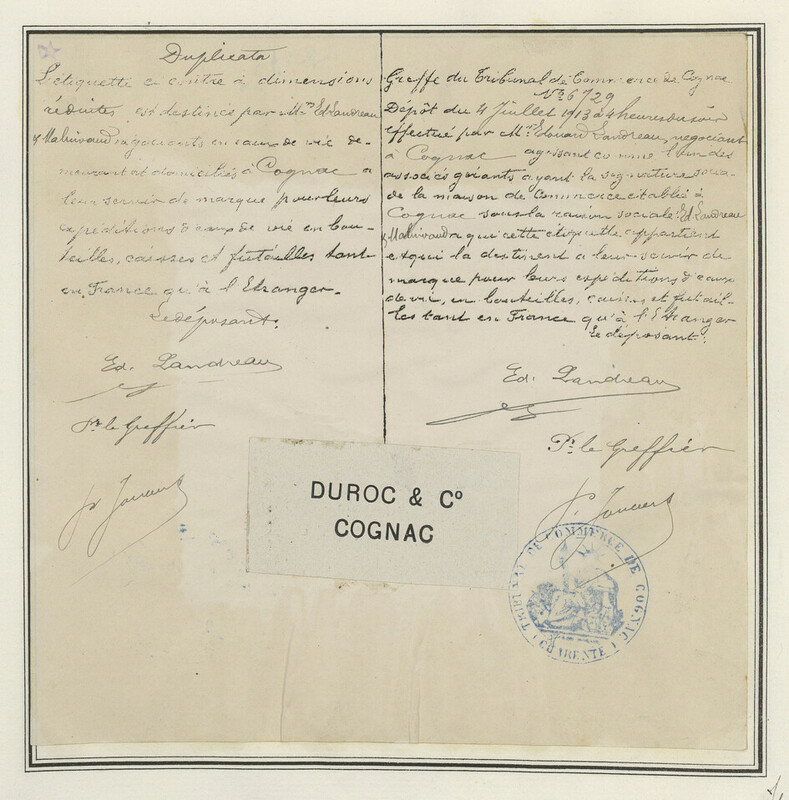 Duplicata
L'étiquette ci contre à dimensions
réduites, est destinée par MM. Ed Landreau
& Malnivaud négociants en eaux de vie de-
meurant et domiciliés à Cognac a
leur servir de marque pour leurs
expéditions d'eaux de vie en bou-
teilles, caisses et futailles tant
en France qu'à l'Etranger.
Le déposant.
Ed. Landreau
Pr le Greffier
Greffe du Tribunal de Commerce de Cognac
No 6729
Dépôt du 4 Juillet 1913 à 4 heures du soir
effectué par Mr. Edouard Landreau, négociant
à Cognac agissant comme l'un des
associés gérants ayant la signature socia-
de la maison de Commerce établie à
Cognac sous la raison sociale Ed Landreau
& Malnivaud a qui cette étiquette appartient
et qui la destinent a leur servir de
marque pour leurs expéditions d'eaux
de vie, en bouteilles, caisses et futail-
les tant en France qu'à l'Etranger
Le déposant.
Ed. Landreau
Pr. le Greffier
DUROC & Co
COGNAC
TRIBUNAL DE COMMERCE DE COGNAC
(CHARENTE)